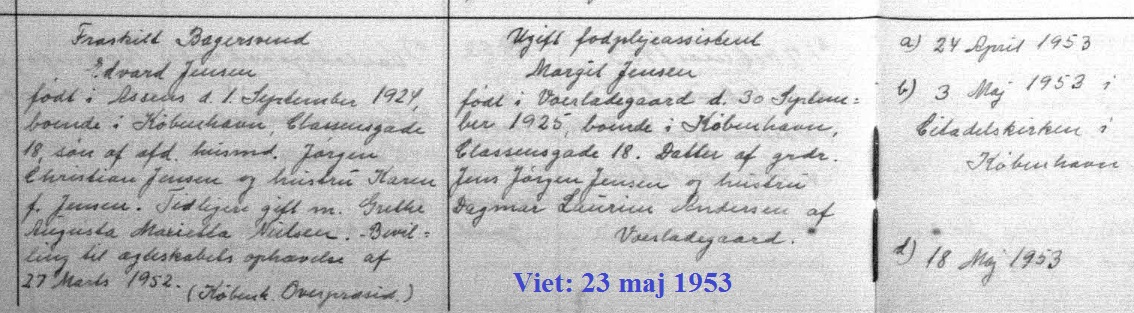 Fraskilt Bagersvend
Edvard Jensen
født i Assens d. 1. September 1924,
boende i København, Classensgade
18, søn af afd. husmd. Jørgen
Christian Jensen og hustru Karen
f. Jensen. Tidligere gift m. Grethe
Augusta Marietta Nielsen. Bevil=
ling til ægteskabets ophævelse af
27 Marts 1952. (Københ. Overpræsid.)
Ugift fodplejeassistent
Margit Jensen
født i Voerladegaard d. 30 Septem=
ber 1925, boende i København,
Classensgade 18. Datter af grdr.
Jens Jørgen Jensen og hustru
Dagmar Laurine Andersen af
Voerladegaard.
Viet: 23 maj 1953
a) 24 April 1953
b) 3 Maj 1953 i
Citadelskirken i
København
d) 18 Maj 1953